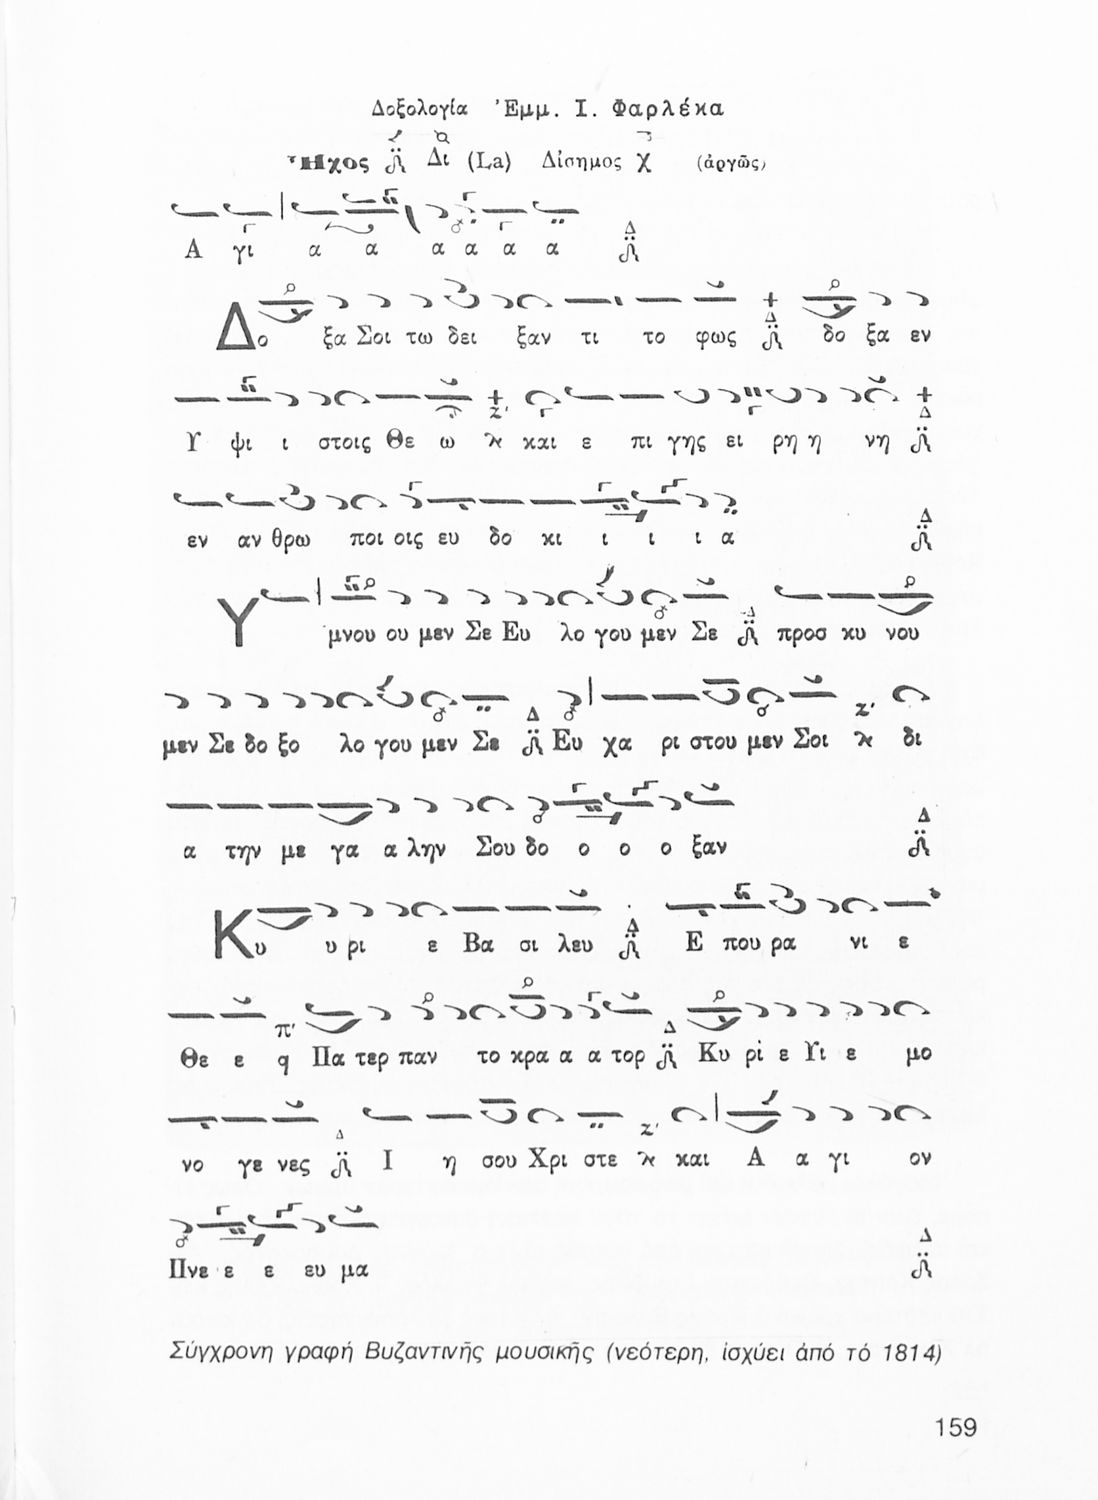 Δοξολογία Ἐμμ. Ι. Φαρλέκα
Ἦχος Δι (La) Δίσημος χ (ἀργῶς)
Α γι α α α α α α Δ
Δο ξα Σοι τω δει ξαν τι το φως Δ δο ξα εν
Υ ψι ι στοις Θε ω ζ' και ε πι γης ει ρη η νη Δ
εν αν θρω ποι οις ευ δο κι ι ι ι α Δ
Υ μνου ου μεν Σε Ευ λο γου μεν Σε Δ προσ κυ νου
μεν Σε δο ξο λο γου μεν Σε Δ Ευ χα ρι στου μεν Σοι ζ' δι
α την με γα α λην Σου δο ο ο ο ξαν Δ
Κυ υ ρι ε Βα σι λευ Δ Ε που ρα νι ε
Θε ε π' q Πα τερ παν το κρα α α τορ Δ Κυ ρί ε Υι ε μο
νο γε νες Δ Ι η σου Χρι στε ζ' και Α α γι ον
Πνε ε ε ευ μα Δ
Σύγχρονη γραφή Βυζαντινῆς μουσικῆς (νεότερη, ἰσχύει ἀπό τό 1814)
159